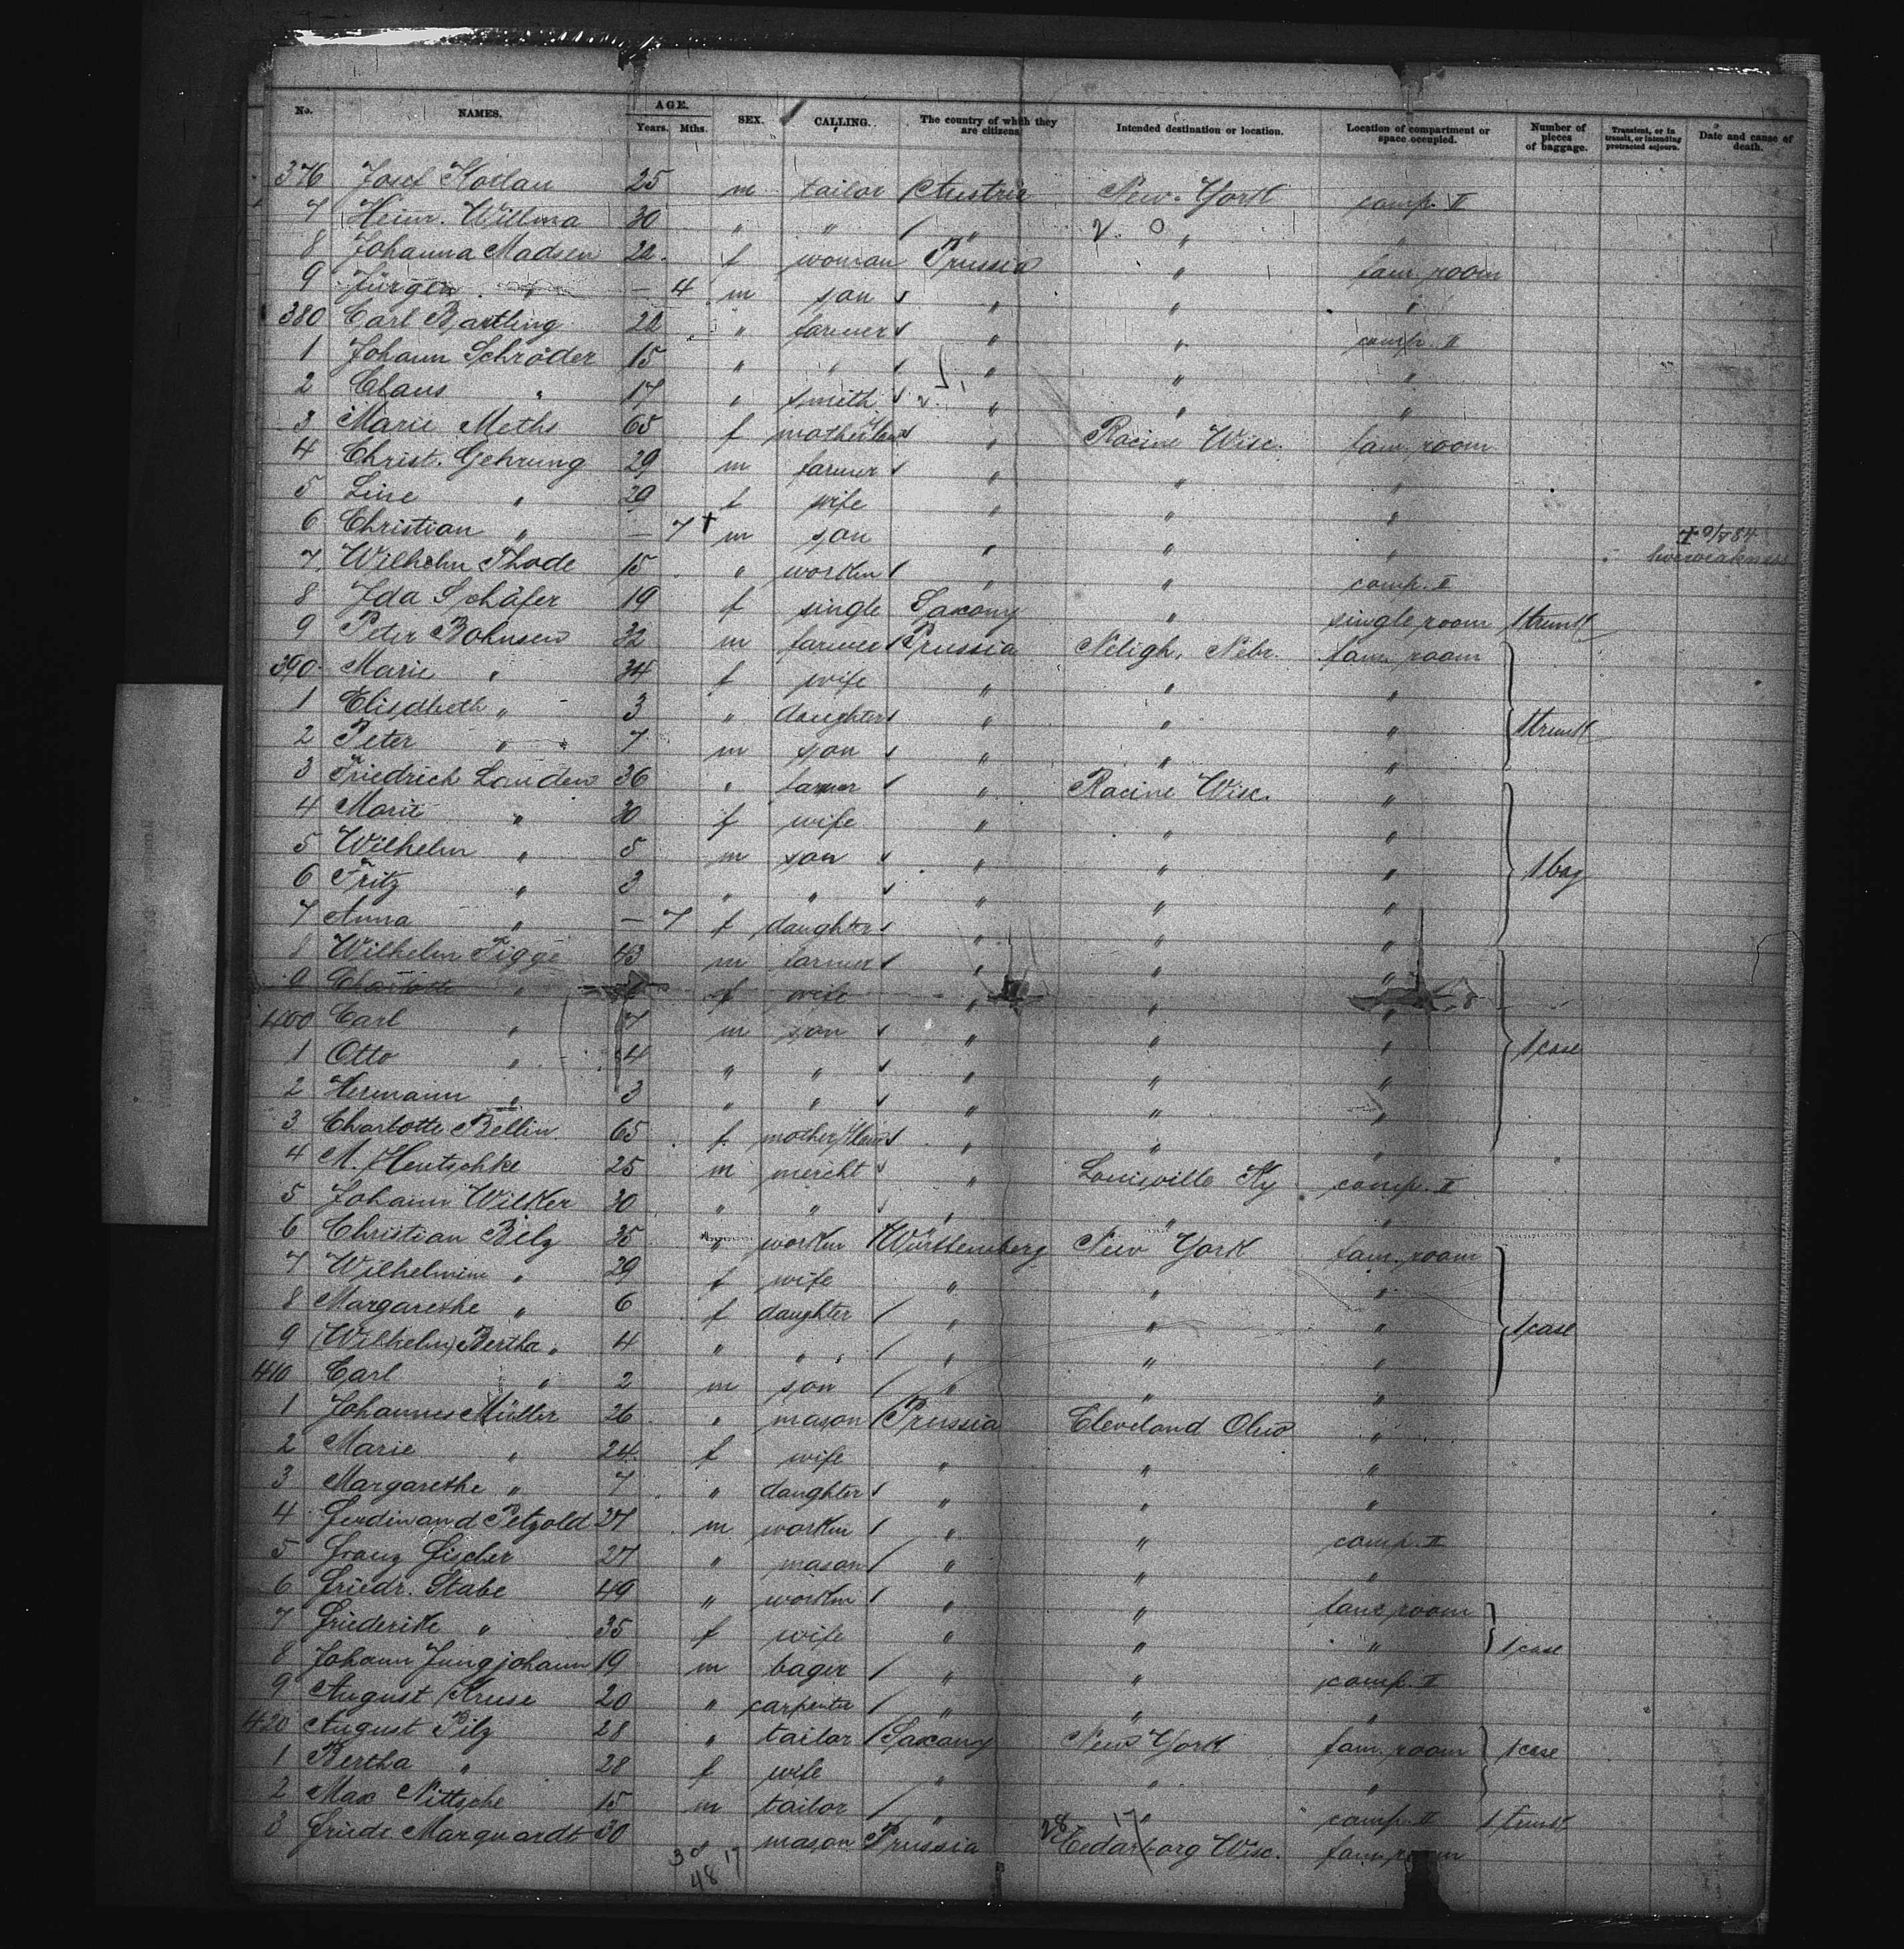 No. NAMES. AGE. Years. Mths. SEX. CALLING. The country of which they are citizens. Intended destination or location. Location of compartment or space occupied. Number of pieces of baggage. Transient, or in transit, or intending protracted sojourn. Date and cause of death.
376 Josef Kotlan 25 m tailor Austria New-York comp. II
7 Heinr. Willma 30 " " " " "
8 Johanna Madsen 22 f woman Prussia " fam. room
9 Jürgen " — 4 m son " " "
380 Carl Bartling 22 " farmer " " comp. II
1 Johann Schröder 15 " " " " "
2 Claus " 17 " smith " " "
3 Marie Meths 65 f mother " Racine Wisc. fam. room
4 Christ. Gehrung 29 m farmer " " "
5 Line " 29 f wife " " "
6 Christian " — 7 + m son " " " 84
7 Wilhelm Thode 15 " workm " " comp. II
8 Ida Schäfer 19 f single Saxony " single room 1 trunk
9 Peter Bohnsen 32 m farmer Prussia Neligh, Nebr. fam. room
390 Marie " 34 f wife " " "
1 Elisabeth " 3 " daughter " " " 1 trunk
2 Peter " 7 m son " " "
3 Friedrich Landen 36 " farmer " Racine Wisc. "
4 Marie " 30 f wife " " "
5 Wilhelm " 5 m son " " "
6 Fritz " 3 " " " " " 1 bag
7 Anna " — 7 f daughter " " "
8 Wilhelm Figge 43 m farmer " " "
9 Charlotte " f wife " " "
400 Carl " 7 m son " " "
1 Otto " 4 " " " " " 1 case
2 Hermann " 3 " " " " "
3 Charlotte Bellin 65 f mother " " "
4 M. Hentschke 25 m mercht " Louisville Ky comp. II
5 Johann Wilker 30 " " " " "
6 Christian Belz 35 " workm Württemberg New York fam. room
7 Wilhelmine " 29 f wife " " "
8 Margarethe " 6 f daughter " " " 1 case
9 (Wilhelm) Bertha " 4 " " " " "
410 Carl " 2 m son " " "
1 Johannes Müller 26 " mason Prussia Cleveland Ohio "
2 Marie " 24 f wife " " "
3 Margarethe " 7 " daughter " " "
4 Ferdinand Petzold 27 m workm " " comp. II
5 Franz Fischer 27 " mason " " "
6 Friedr. Stabe 49 " workm " " fam. room
7 Friederike " 35 f wife " " " 1 case
8 Johann Jungjohann 19 m bager " " comp. II
9 August Kruse 20 " carpenter " " "
420 August Pilz 28 " tailor Saxony New York fam. room 1 case
1 Bertha " 28 f wife " " "
2 Max Nittsche 15 m tailor " " comp. II 1 trunk
3 Friedr Marquardt 30 " mason Prussia Cedarborg Wisc. fam. room
48 17